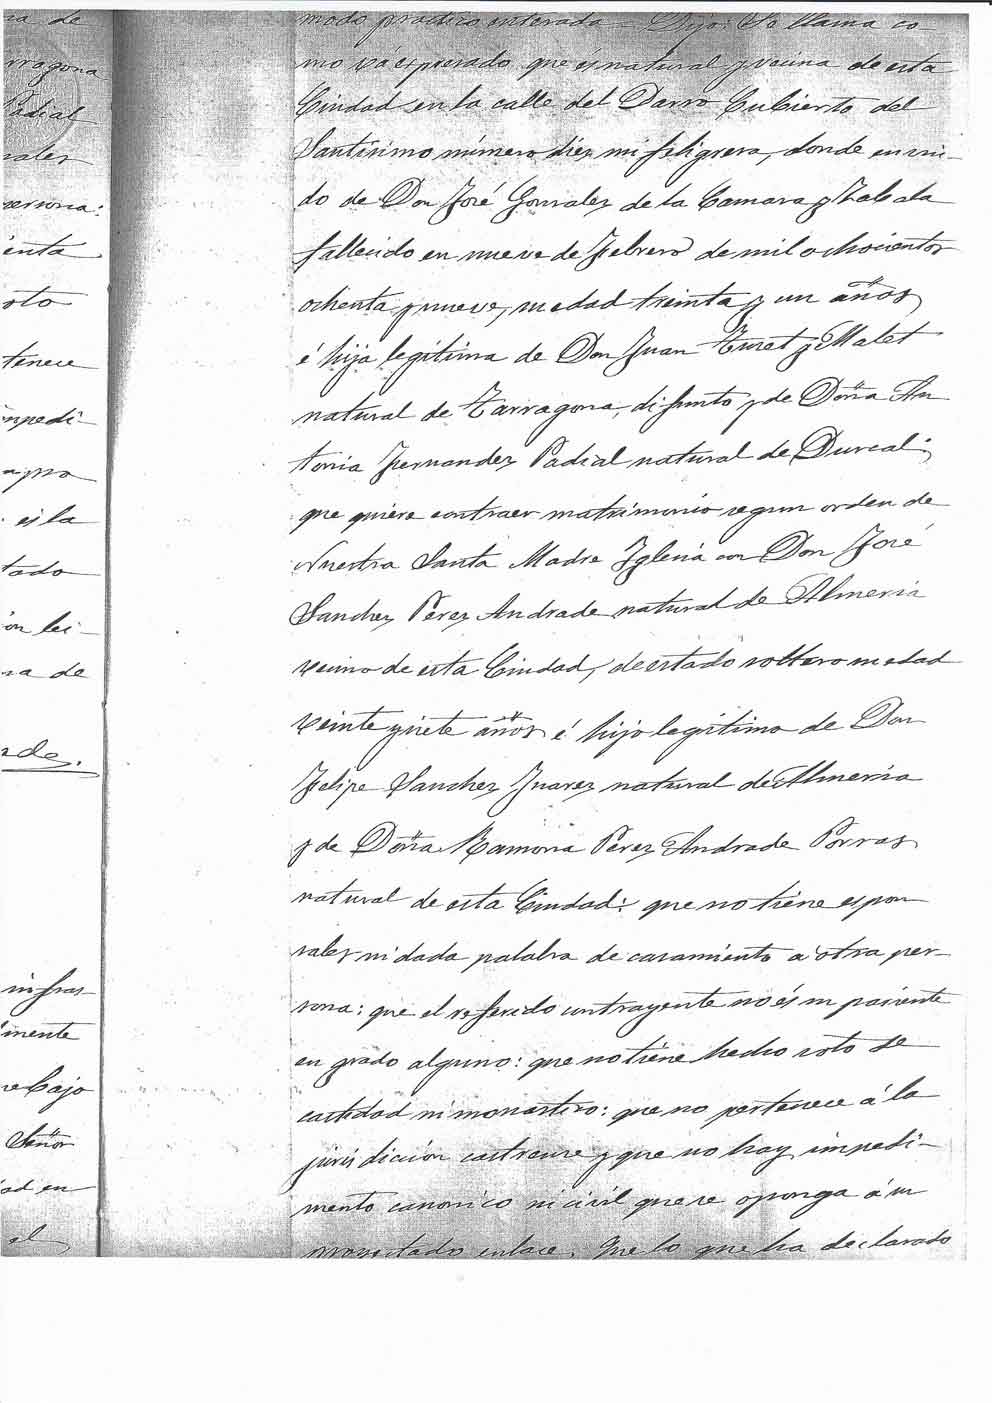 na de
rragona
Padial
rales
persona:
enta
oto
tenece
mpedi-
a pro
es la
tado
on lei-
na de
rde.
infras-
mente
re bajo
Señor
ad en
el
modo practico enterada = Dijo: Se llama co-
mo vá espresado que és natural y vecina de esta
Ciudad en la calle del Darro Cubierto del
Santisimo número diez mi feligresa, donde enviu-
do de Don José Gonzalez de la Camara y Zabala
fallecido en nueve de Febrero de mil ochocientos
ochenta y nueve, su edad treinta y un años
é hija legitima de Don Juan Turet y Malet
natural de Tarragona, difunto y de Doña An
tonia Fernandez Padial natural de Durcal:
que quiere contraer matrimonio segun orden de
Nuestra Santa Madre Iglesia con Don José
Sanchez Perez Andrade natural de Almeria
vecino de esta Ciudad, de estado soltero su edad
veinte y siete años é hijo legitimo de Don
Felipe Sanchez Juarez natural de Almeria
y de Doña Ramona Perez Andrade Porras
natural de esta Ciudad: que no tiene espon
sales ni dada palabra de casamiento á otra per-
sona: que el referido contrayente no és su pariente
en grado alguno: que no tiene hecho voto de
castidad ni monastico: que no pertenece á la
jurisdicción castrense y que no hay impedi-
mento canonico ni civil que se oponga á su
proyectado enlace. Que lo que ha declarado